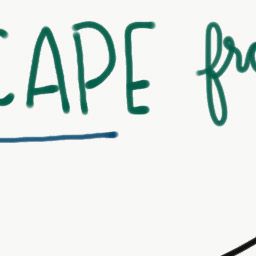 CAPE fro